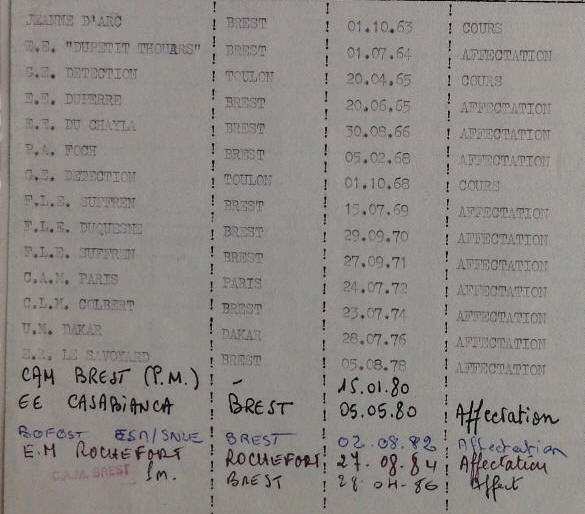 JEANNE D'ARC BREST 01.10.63 COURS
E.E. "DUPETIT THOUARS" BREST 01.07.64 AFFECTATION
G.E. DETECTION TOULON 20.04.65 COURS
E.E. DUPERRE BREST 20.06.65 AFFECTATION
E.E. DU CHAYLA BREST 30.08.66 AFFECTATION
P.A. FOCH BREST 05.02.68 AFFECTATION
G.E. DETECTION TOULON 01.10.68 COURS
F.L.E. SUFFREN BREST 15.07.69 AFFECTATION
F.L.E. DUQUESNE BREST 29.09.70 AFFECTATION
F.L.E. SUFFREN BREST 27.09.71 AFFECTATION
C.A.M. PARIS PARIS 24.07.72 AFFECTATION
C.L.M. COLBERT BREST 23.07.74 AFFECTATION
U.M. DAKAR DAKAR 28.07.76 AFFECTATION
E.R. LE SAVOYARD BREST 05.08.78 AFFECTATION
CAM BREST (P.M.) - 15.01.80
EE CASABIANCA BREST 05.05.80 Affectation
BOFOST ESM/SNLE BREST 02.08.82 Affectation
E.M ROCHEFORT ROCHEFORT 27.08.84 Affectation
C.A.M. BREST BREST 28.04.86 Affect